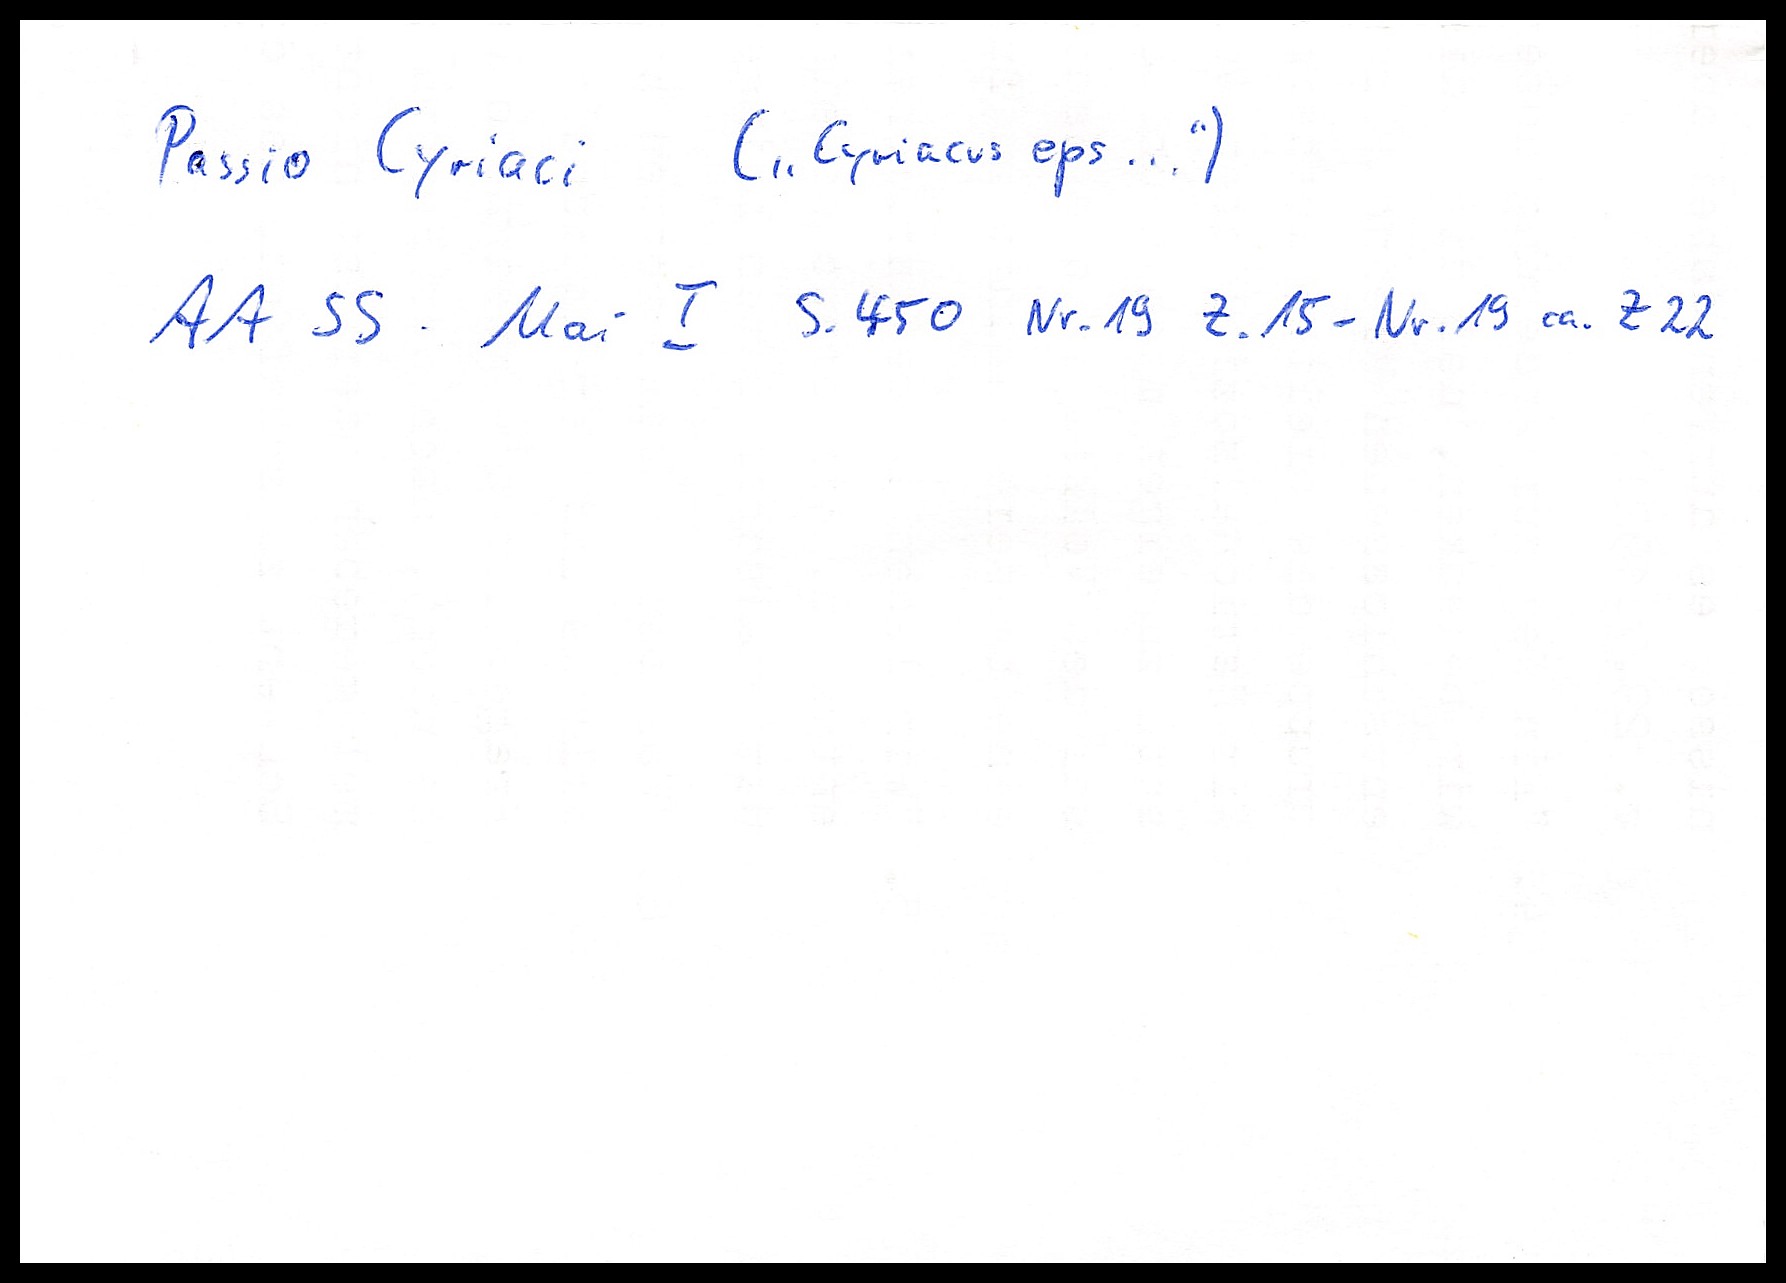 Passio Cyriaci („Cyriacus eps...“)
AA SS. Mai I S. 450 Nr. 19 Z. 15 - Nr. 19 ca. Z 22